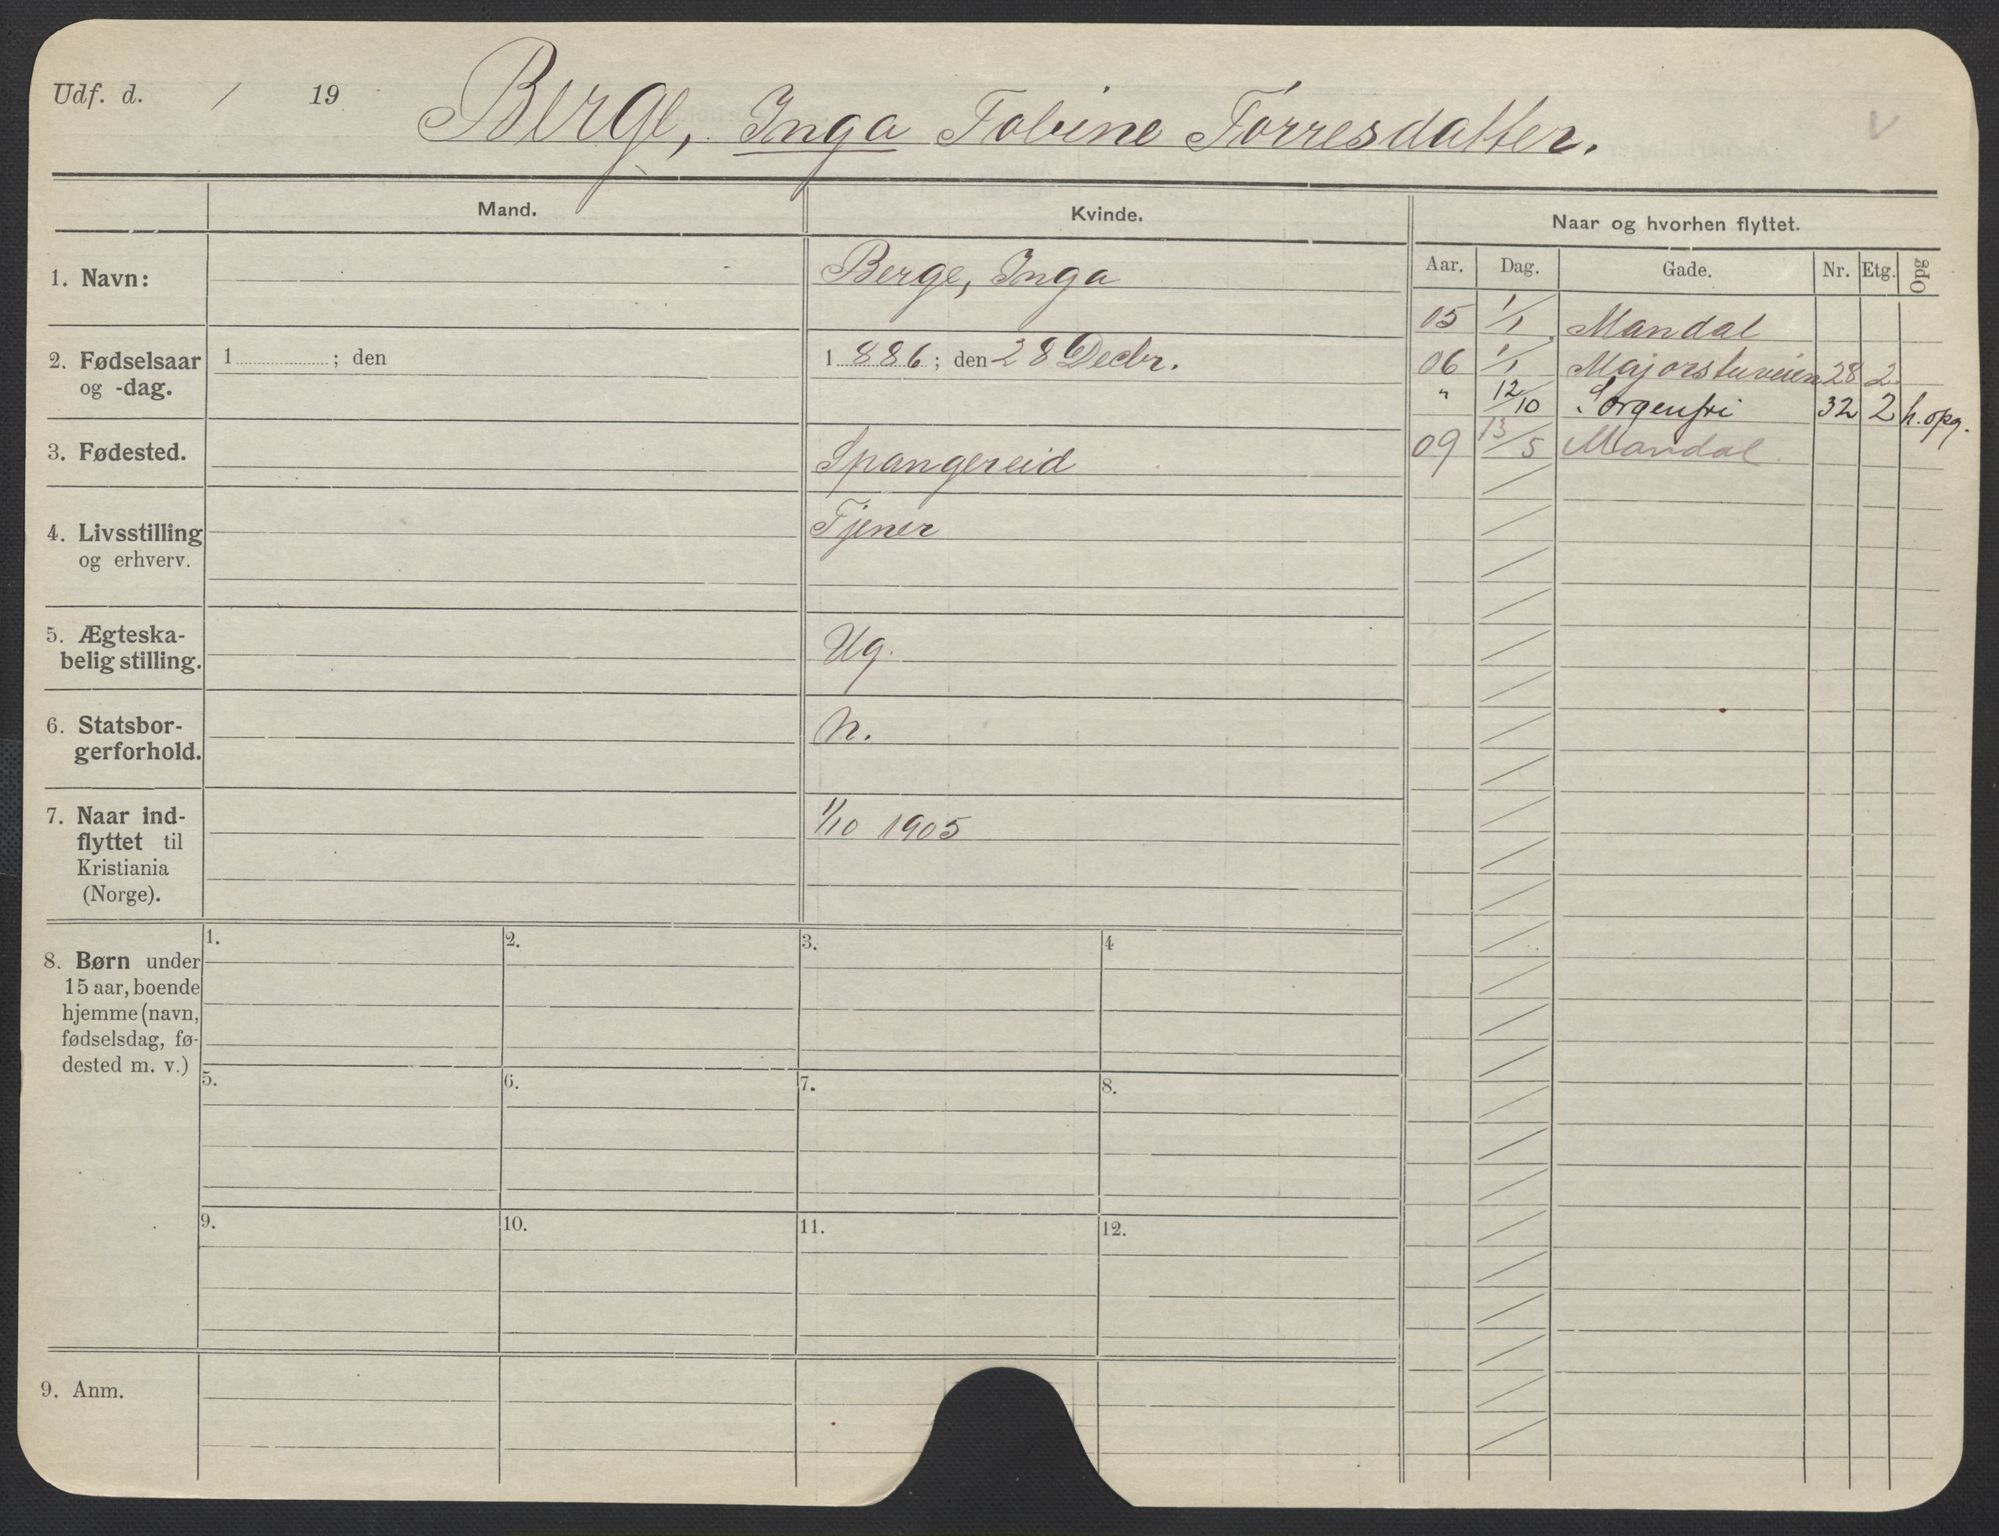 Udf. d. / 19 Berge, Inga Tobine Tørresdatter. V
Mand. Kvinde. Naar og hvorhen flyttet.
Aar. Dag. Gade. Nr. Etg. Opg
1. Navn: Berge, Inga
05 1/1 Mandal
2. Fødselsaar og -dag. 1 ; den 1 886 ; den 28 Decbr.
06 1/1 Majorstuveien 28 2
" 12/10 Sorgenfri 32 2 h. opg.
3. Fødested. Spangereid
09 13/5 Mandal
4. Livsstilling og erhverv. Tjener
5. Ægteska-
belig stilling. Ug.
6. Statsbor-
gerforhold. n.
7. Naar ind-
flyttet til
Kristiania
(Norge). 1/10 1905
8. Børn under
15 aar, boende
hjemme (navn,
fødselsdag, fø-
dested m. v.)
1. 2. 3. 4
5. 6. 7. 8.
9. 10. 11. 12.
9. Anm.